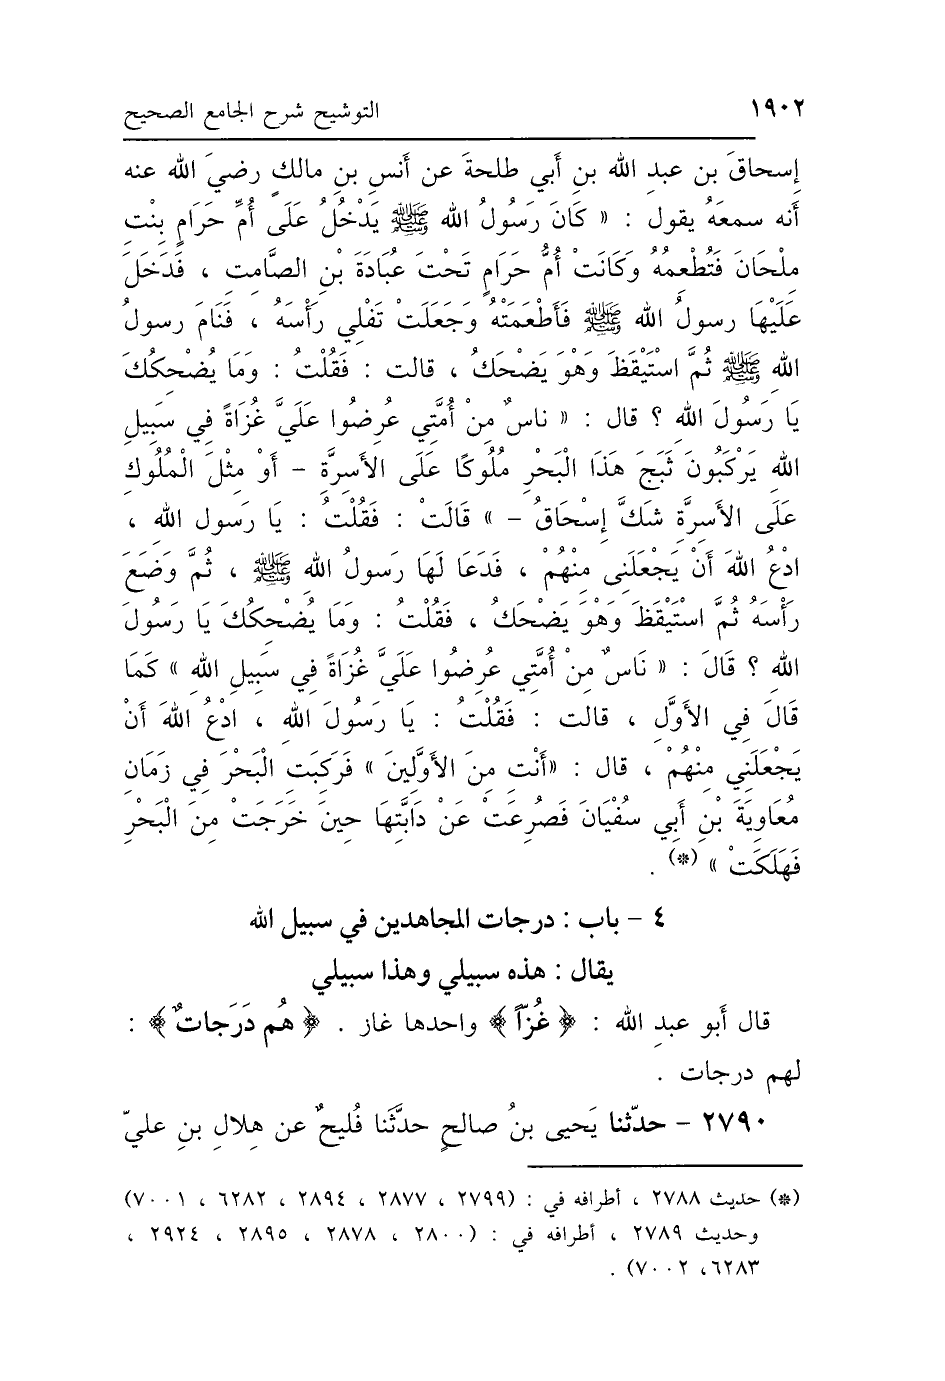 ١٩٠٢ التوشيح شرح الجامع الصحيح
إسحاقَ بنِ عبدِ الله بنِ أَبي طلحةَ عن أَنسِ بنِ مالكٍ رضيَ الله عنه
أَنه سمعَهُ يقول : « كَانَ رَسُولُ الله ﷺ يَدْخُلُ عَلَى أُمِّ حَرَامٍ بِنْتِ
مِلْحَانَ فَتُطْعِمُهُ وَكَانَتْ أُمُّ حَرَامٍ تَحْتَ عُبَادَةَ بْنِ الصَّامِتِ ، فَدَخَلَ
عَلَيْهَا رسولُ الله ﷺ فَأَطْعَمَتْهُ وَجَعَلَتْ تَفْلِي رَأْسَهُ ، فَنَامَ رسولُ
الله ﷺ ثُمَّ اسْتَيْقَظَ وَهْوَ يَضْحَكُ ، قالت : فَقُلْتُ : وَمَا يُضْحِكُكَ
يَا رَسُولَ اللهِ ؟ قال : « ناسٌ مِنْ أُمَّتِي عُرِضُوا عَلَيَّ غُزَاةً فِي سَبِيلِ
الله يَرْكَبُونَ ثَبَجَ هَذَا الْبَحْرِ مُلُوكًا عَلَى الأَسِرَّةِ – أَوْ مِثْلَ الْمُلُوكِ
عَلَى الأَسِرَّةِ شَكَّ إِسْحَاقُ – » قَالَتْ : فَقُلْتُ : يَا رَسول اللهِ ،
ادْعُ اللهَ أَنْ يَجْعَلَنِي مِنْهُمْ ، فَدَعَا لَهَا رَسولُ اللهِ ﷺ ، ثُمَّ وَضَعَ
رَأْسَهُ ثُمَّ اسْتَيْقَظَ وَهْوَ يَضْحَكُ ، فَقُلْتُ : وَمَا يُضْحِكُكَ يَا رَسُولَ
اللهِ ؟ قَالَ : « نَاسٌ مِنْ أُمَّتِي عُرِضُوا عَلَيَّ غُزَاةً فِي سَبِيلِ اللهِ » كَمَا
قَالَ فِي الأَوَّلِ ، قالت : فَقُلْتُ : يَا رَسُولَ اللهِ ، ادْعُ اللهَ أَنْ
يَجْعَلَنِي مِنْهُمْ ، قال : «أَنْتِ مِنَ الأَوَّلِينَ » فَرَكِبَتِ الْبَحْرَ فِي زَمَانِ
مُعَاوِيَةَ بْنِ أَبِي سُفْيَانَ فَصُرِعَتْ عَنْ دَابَّتِهَا حِينَ خَرَجَتْ مِنَ الْبَحْرِ
فَهَلَكَتْ » (*) .
٤ – باب : درجات المجاهدين في سبيل الله
يقال : هذه سبيلي وهذا سبيلي
قال أَبو عبدِ الله : ﴿ غُزّاً ﴾ واحدها غاز . ﴿ هُم دَرَجاتٌ ﴾ :
لهم درجات .
٢٧٩٠ – حدّثنا يَحيى بنُ صالحٍ حدَّثَنا فُليحٌ عن هِلالِ بنِ عليّ
(*) حديث ٢٧٨٨ ، أطرافه في : (٢٧٩٩ ، ٢٨٧٧ ، ٢٨٩٤ ، ٦٢٨٢ ، ٧٠٠١)
وحديث ٢٧٨٩ ، أطرافه في : (٢٨٠٠ ، ٢٨٧٨ ، ٢٨٩٥ ، ٢٩٢٤ ،
٦٢٨٣، ٧٠٠٢) .